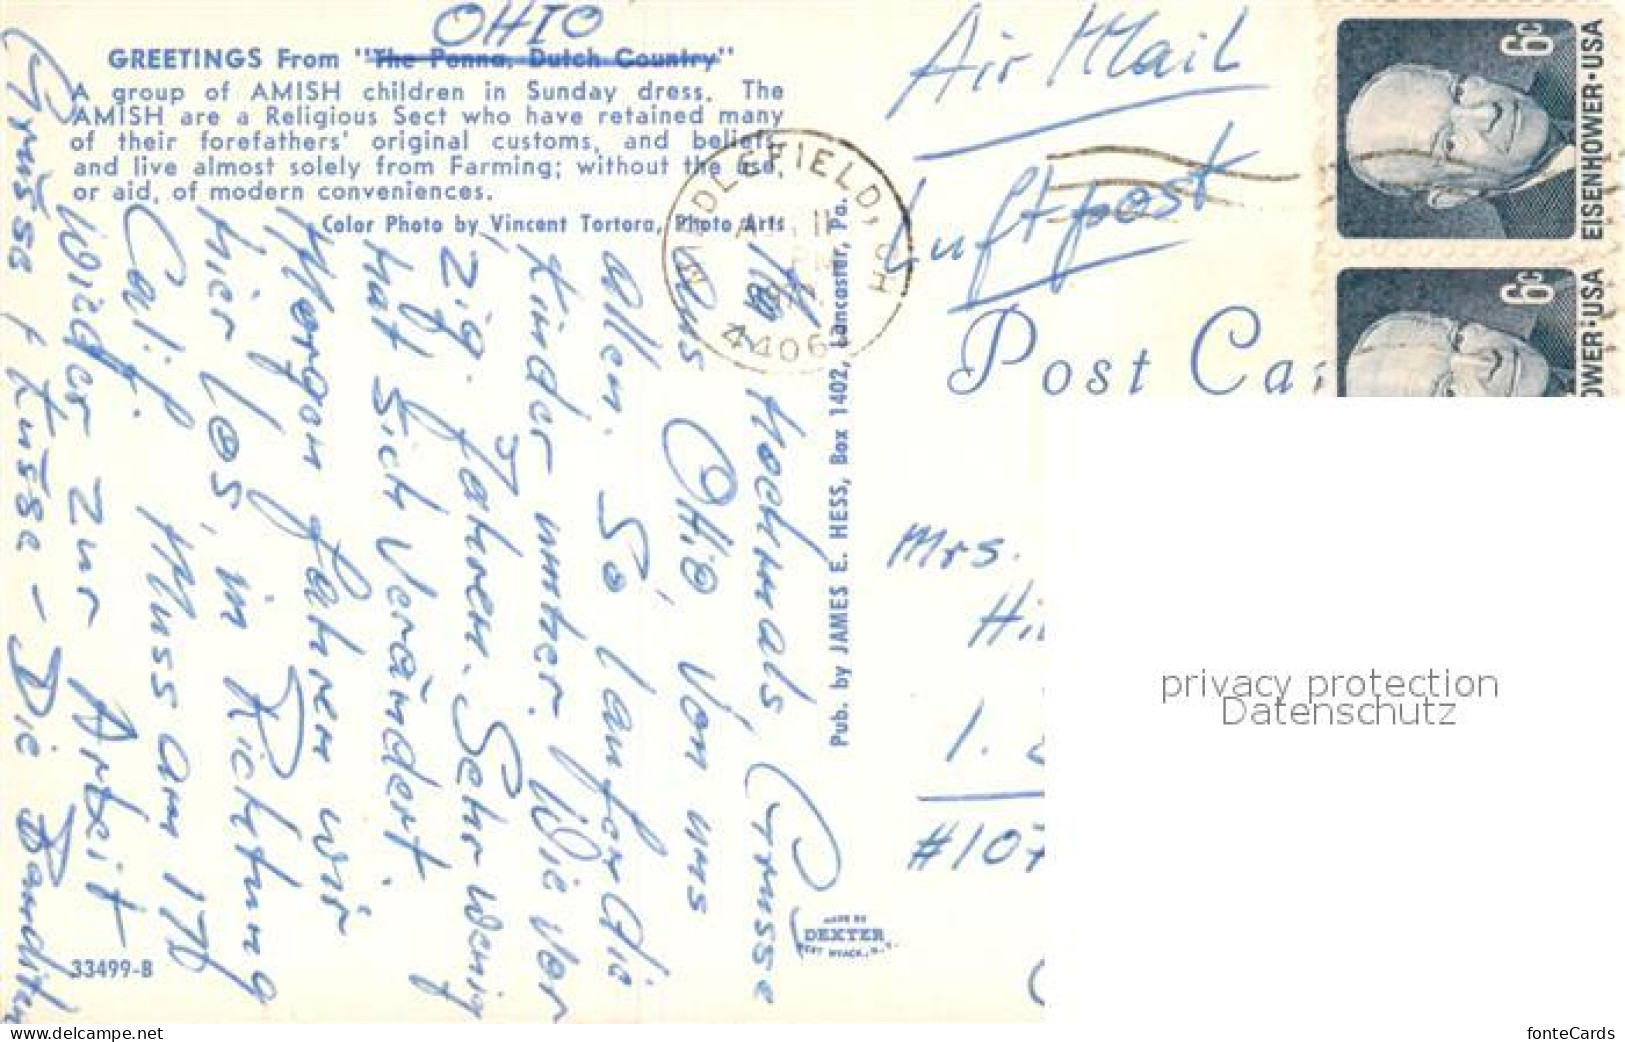 OHIO
GREETINGS From "The Penna. Dutch Country"
A group of AMISH children in Sunday dress. The
AMISH are a Religious Sect who have retained many
of their forefathers' original customs, and beliefs,
and live almost solely from Farming; without the use,
or aid, of modern conveniences.
Color Photo by Vincent Tortora, Photo Arts
Hochmals, Grüsse
aus Ohio, von uns
allen. So laufen die
Kinder umher. Wie vor
zig. Jahren. Sehr wenig
hat sich verändert.
Morgen fahren wir
hier los, in Richtung
Calif. Muss am 17
wieder zur Arbeit
Grüsse + Küsse - Die Banditen
33499-B
Pub. by JAMES E. HESS, Box 1402, Lancaster, Pa.
MADE BY
DEXTER
WEST NYACK, N.Y.
MIDDLEFIELD, OH
11
PM
4406
Air Mail
Luftpost
Post Ca
6c
EISENHOWER·USA
6c
OWER·USA
Mrs.
Hi
1.
#107
privacy protection
Datenschutz
www.delcampe.net
fonteCards